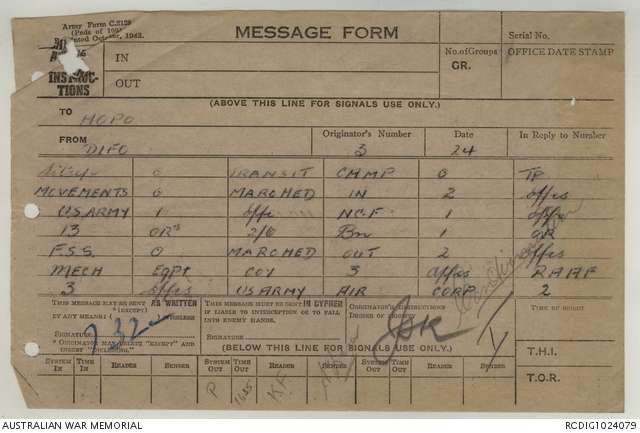 Army Form C.2129
(Pads of 100)
Printed October, 1942.
MESSAGE FORM
Serial No.
INSTRUC-
TIONS
IN
OUT
No. of Groups
GR.
OFFICE DATE STAMP
(ABOVE THIS LINE FOR SIGNALS USE ONLY.)
TO MOPO
FROM DIFO
Originator's Number 3
Date 24
In Reply to Number
O TRANSIT CAMP O TP
MOVEMENTS O MARCHED IN 2 offrs
US ARMY 1 offr NGF 1
13 ORs 2/6 Bn 1 OR
F.S.S. O MARCHED OUT 2 offrs
MECH EQPT COY 3 offrs RAAF
3 offrs US ARMY AIR CORP 2
THIS MESSAGE MAY BE SENT AS WRITTEN
(EXCEPT)
BY ANY MEANS
WIRELESS
SIGNATURE
* ORIGINATOR MAY DELETE "EXCEPT" AND
INSERT "INCLUDING."
THIS MESSAGE MUST BE SENT IN CYPHER
IF LIABLE TO INTERCEPTION OR TO FALL
INTO ENEMY HANDS.
SIGNATURE
ORIGINATOR'S INSTRUCTIONS
DEGREE OF PRIORITY
TIME OF ORIGIN
732
(BELOW THIS LINE FOR SIGNALS USE ONLY.)
T.H.I.
SYSTEM IN TIME IN READER SENDER SYSTEM OUT TIME OUT READER SENDER SYSTEM OUT TIME OUT READER SENDER
T.O.R.
P
AUSTRALIAN WAR MEMORIAL
RCDIG1024079